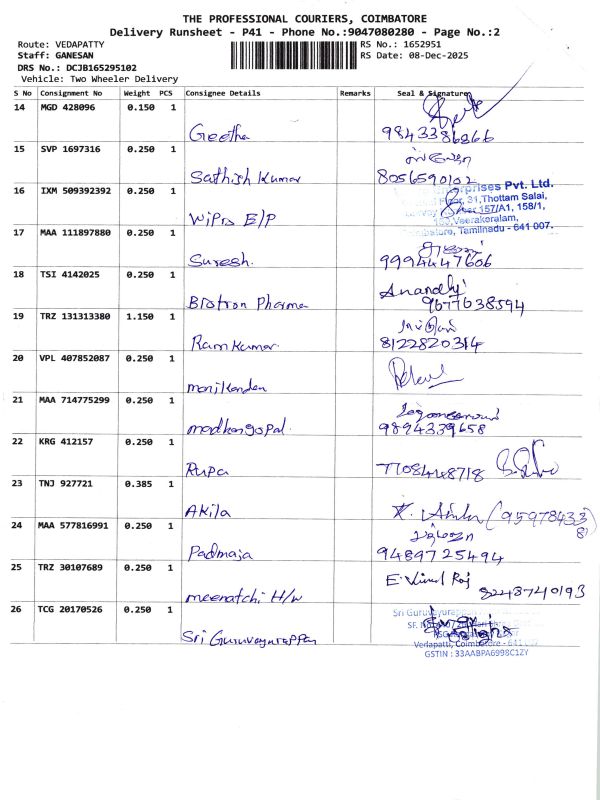 THE PROFESSIONAL COURIERS, COIMBATORE
Delivery Runsheet - P41 - Phone No.:9047080280 - Page No.:2
Route: VEDAPATTY RS No.: 1652951
Staff: GANESAN RS Date: 08-Dec-2025
DRS No.: DCJB165295102
Vehicle: Two Wheeler Delivery
S No Consignment No Weight PCS Consignee Details Remarks Seal & Signature
14 MGD 428096 0.150 1
Geetha 9843386866
15 SVP 1697316 0.250 1
Sathish Kumar 8056590102
16 IXM 509392392 0.250 1
Enterprises Pvt. Ltd.
Floor, 31, Thottam Salai,
157/A1, 158/1,
Veerakeralam,
Tamilnadu - 641 007.
Wipro E/P
17 MAA 111897880 0.250 1
Suresh. 9994447606
18 TSI 4142025 0.250 1
Anandhi
Biotron Pharma 9677638594
19 TRZ 131313380 1.150 1
Ramkumar 8122820314
20 VPL 407852087 0.250 1
manikandan
21 MAA 714775299 0.250 1
madhangopal. 9894339658
22 KRG 412157 0.250 1
Rupa 7708448718
23 TNJ 927721 0.385 1
Akila (959784338)
24 MAA 577816991 0.250 1
Padmaja 9489725494
25 TRZ 30107689 0.250 1
E. Vimal Raj
meenatchi H/W 8248740193
26 TCG 20170526 0.250 1
Sri Guruvayurappan
Sri Guruvayurappan
SF. No.
Vedapatti, Coimbatore - 641 007
GSTIN : 33AABPA6998C1ZY